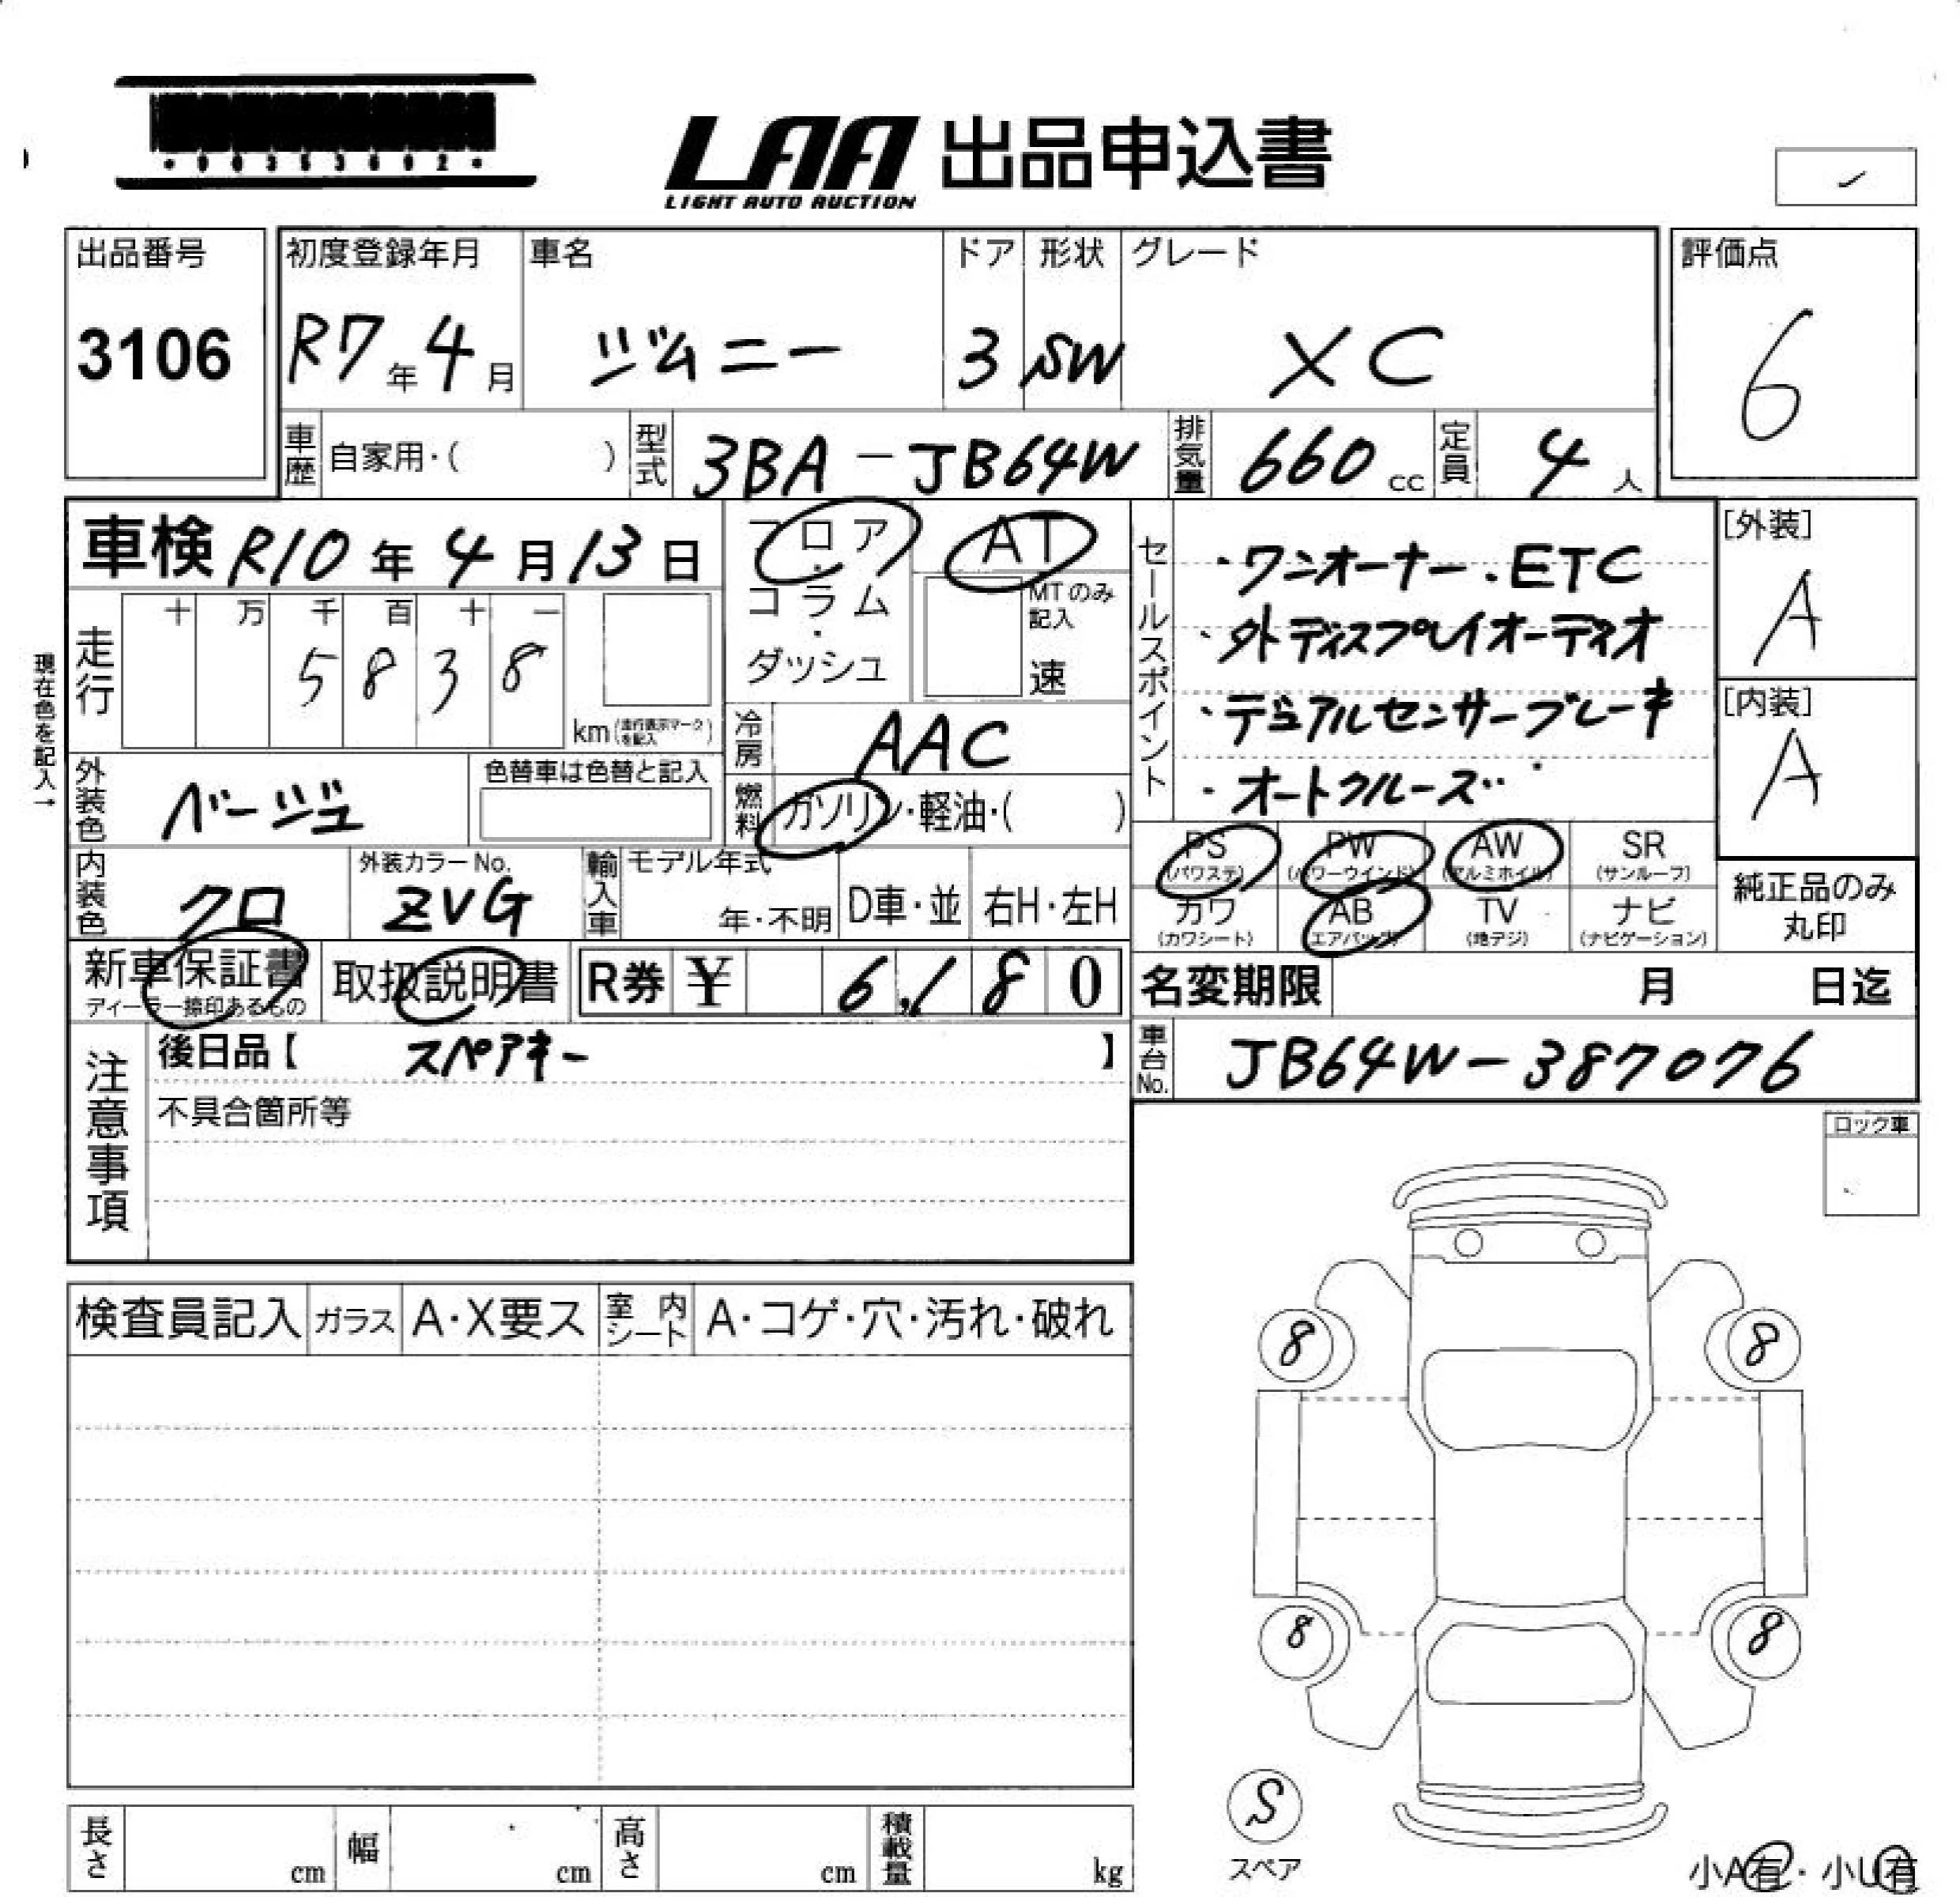 ・00353602・
LAA 出品申込書
LIGHT AUTO AUCTION
出品番号
3106
初度登録年月
R7年4月
車名
ジムニー
ドア
3
形状
SW
グレード
XC
評価点
6
車歴 自家用・( )
型式 3BA-JB64W
排気量 660cc
定員 4人
車検 R10年4月13日
フロア・コラム・ダッシュ
AT
MTのみ記入
速
セールスポイント
・ワンオーナー.ETC
・外ディスプレイオーディオ
・デュアルセンサーブレーキ
・オートクルーズ
[外装]
A
[内装]
A
現在色を記入→
走行
十 万 千 百 十 一
5 8 3 8
km(走行表示マークを記入)
冷房 AAC
燃料 ガソリン・軽油・( )
外装色 ベージュ
色替車は色替と記入
内装色 クロ
外装カラーNo.
ZVG
輸入車
モデル年式
年・不明
D車・並
右H・左H
PS (パワステ)
PW (パワーウインド)
AW (アルミホイル)
SR (サンルーフ)
カワ (カワシート)
AB (エアバッグ)
TV (地デジ)
ナビ (ナビゲーション)
純正品のみ丸印
新車保証書
ディーラー捺印あるもの
取扱説明書
R券 ¥ 6,180
名変期限 月 日迄
車台No. JB64W-387076
注意事項
後日品【 スペアキー 】
不具合箇所等
ロック車
検査員記入
ガラス A・X要ス
室内シート A・コゲ・穴・汚れ・破れ
8 8
8 8
S
スペア
長さ cm
幅 cm
高さ cm
積載量 kg
小A有・小U有